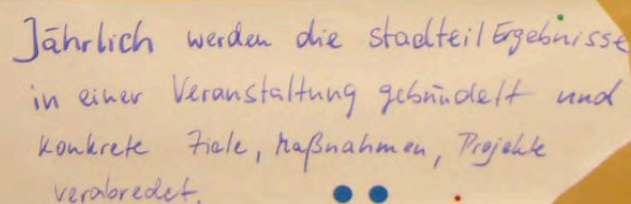 Jährlich werden die StadtteilErgebnisse
in einer Veranstaltung gebündelt und
konkrete Ziele, Maßnahmen, Projekte
verabredet.